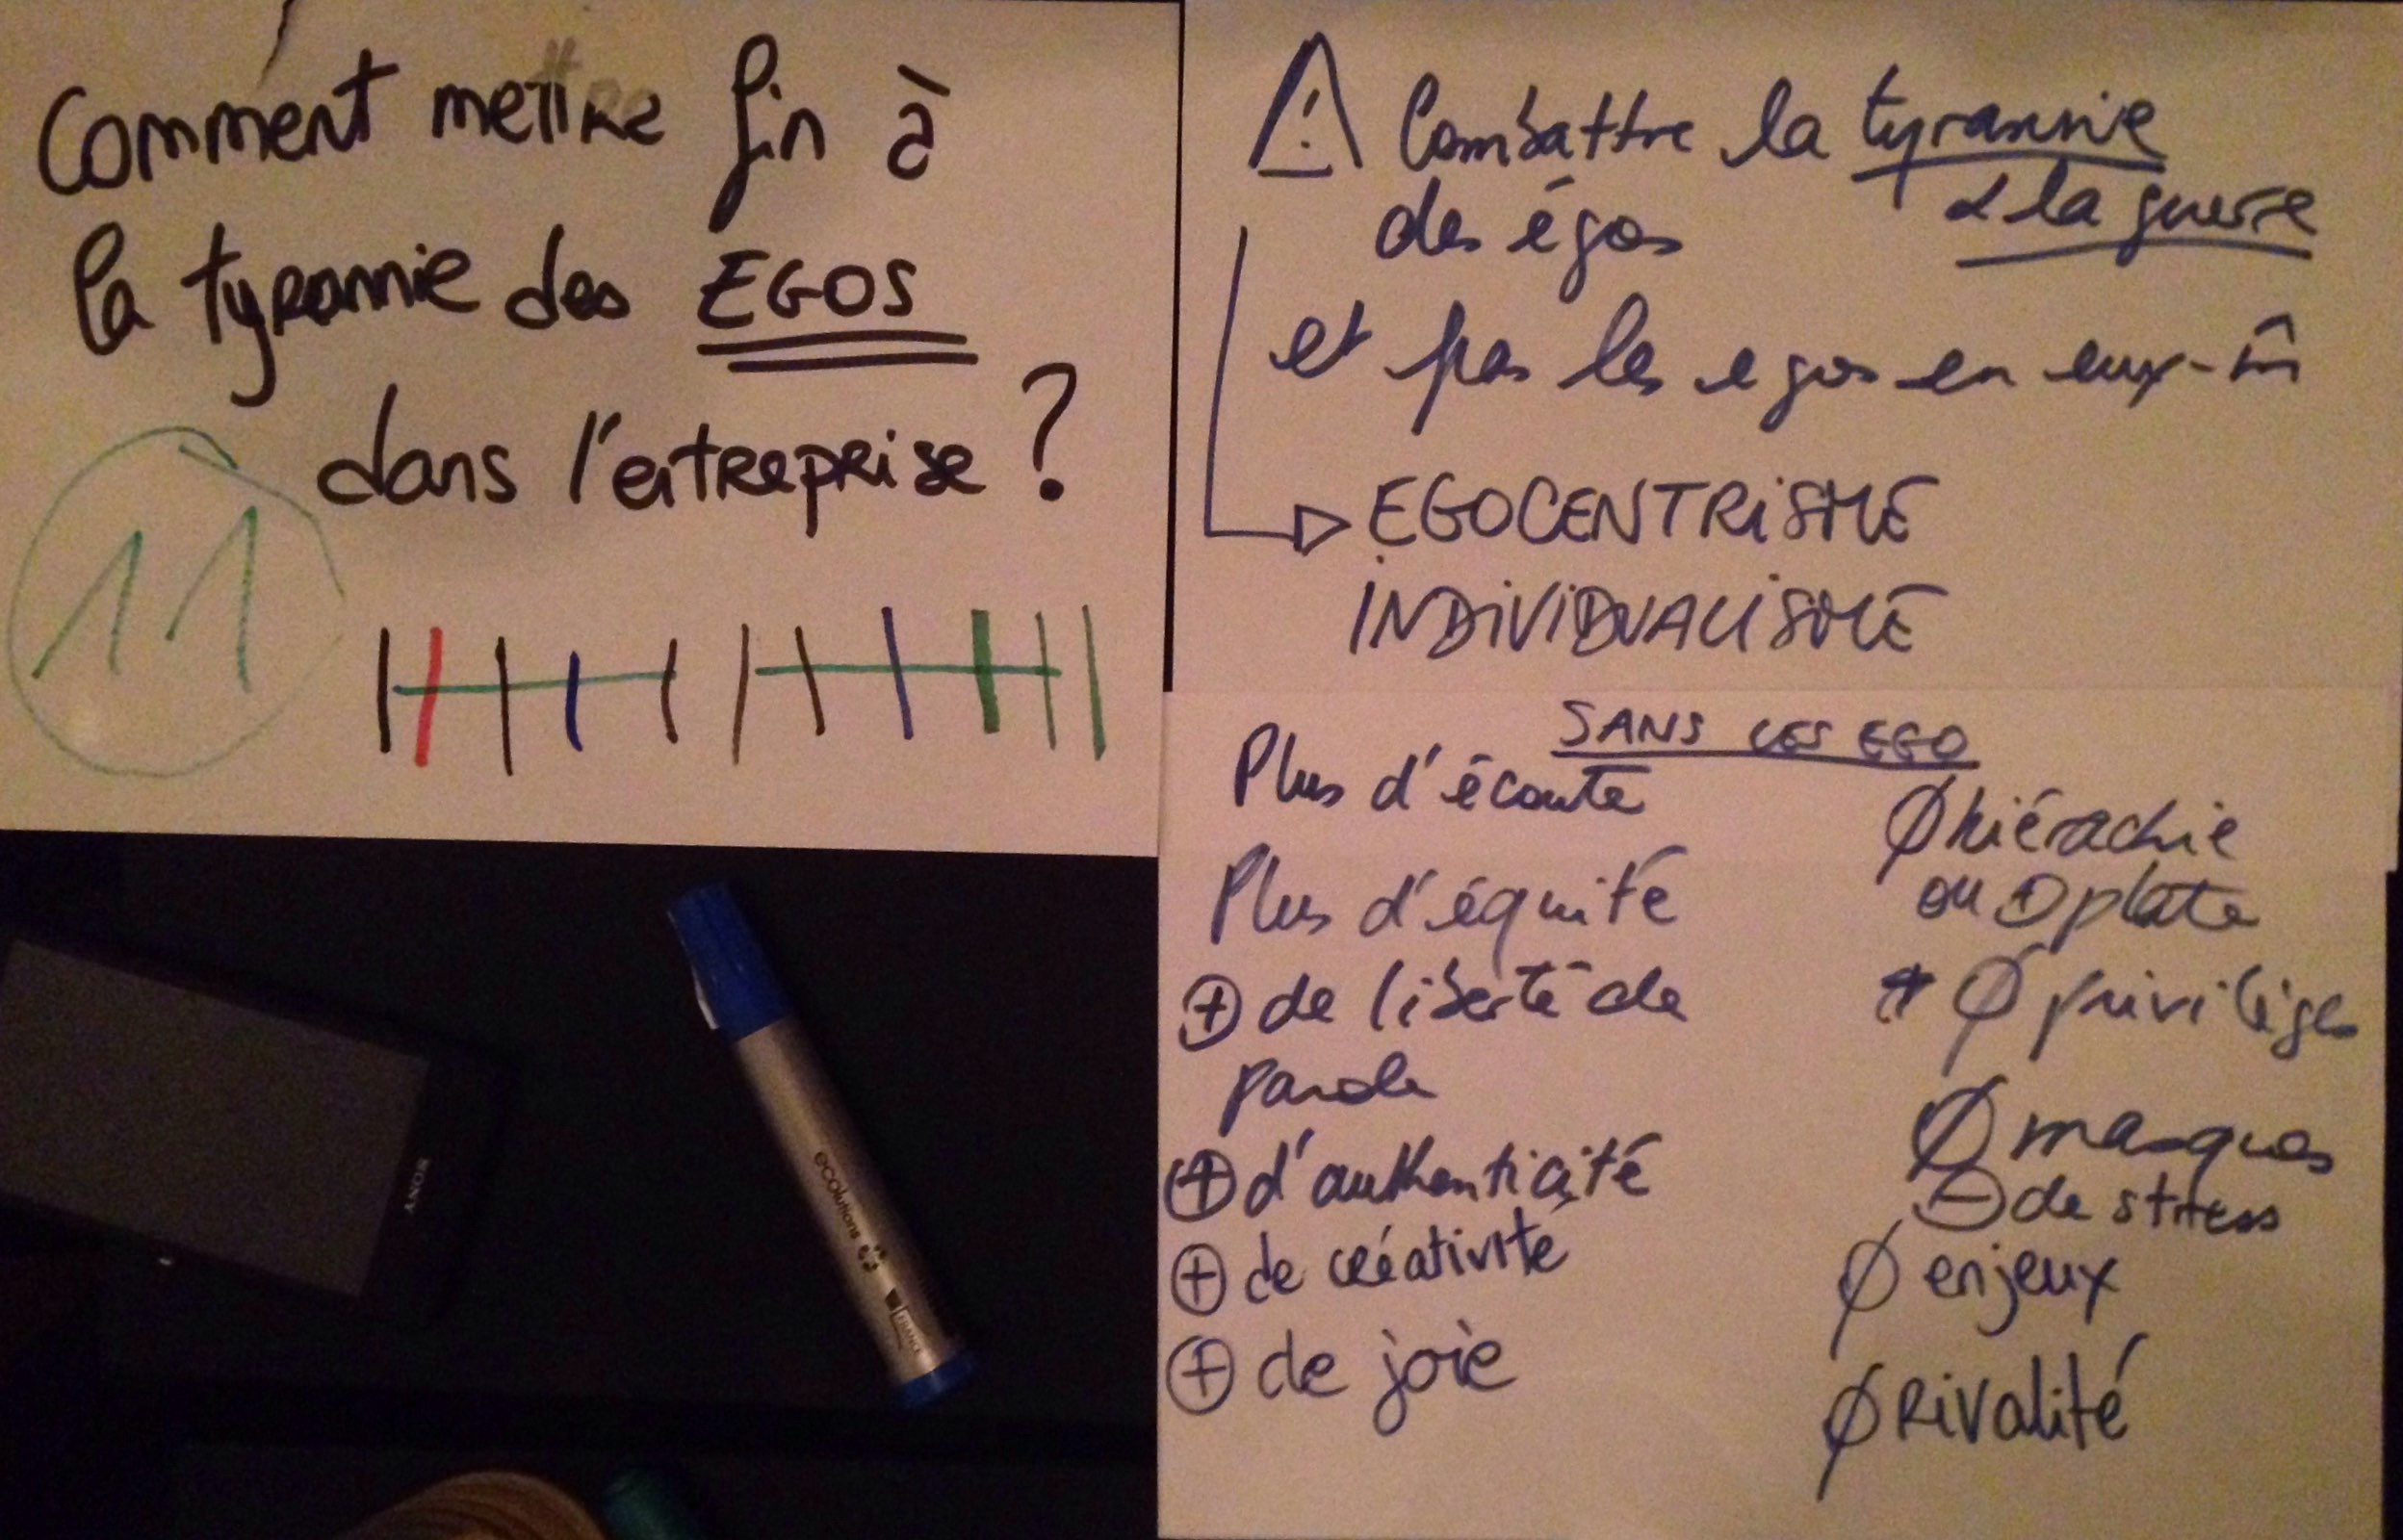 Comment mettre fin à
la tyrannie des EGOS
dans l'entreprise ?
11
⚠ Combattre la tyrannie
& la guerre
des égos
et pas les egos en eux-m̂
EGOCENTRISME
INDIVIDUALISME
SANS LES EGO
Plus d'écoute
Plus d'équité
⊕ de liberté de
parole
⊕ d'authenticité
⊕ de créativité
⊕ de joie
Ø hiérachie
ou ⊕ plate
Ø privilèges
Ø masques
⊖ de stress
Ø enjeux
Ø Rivalité
SONY
ecolutions
FRANCE